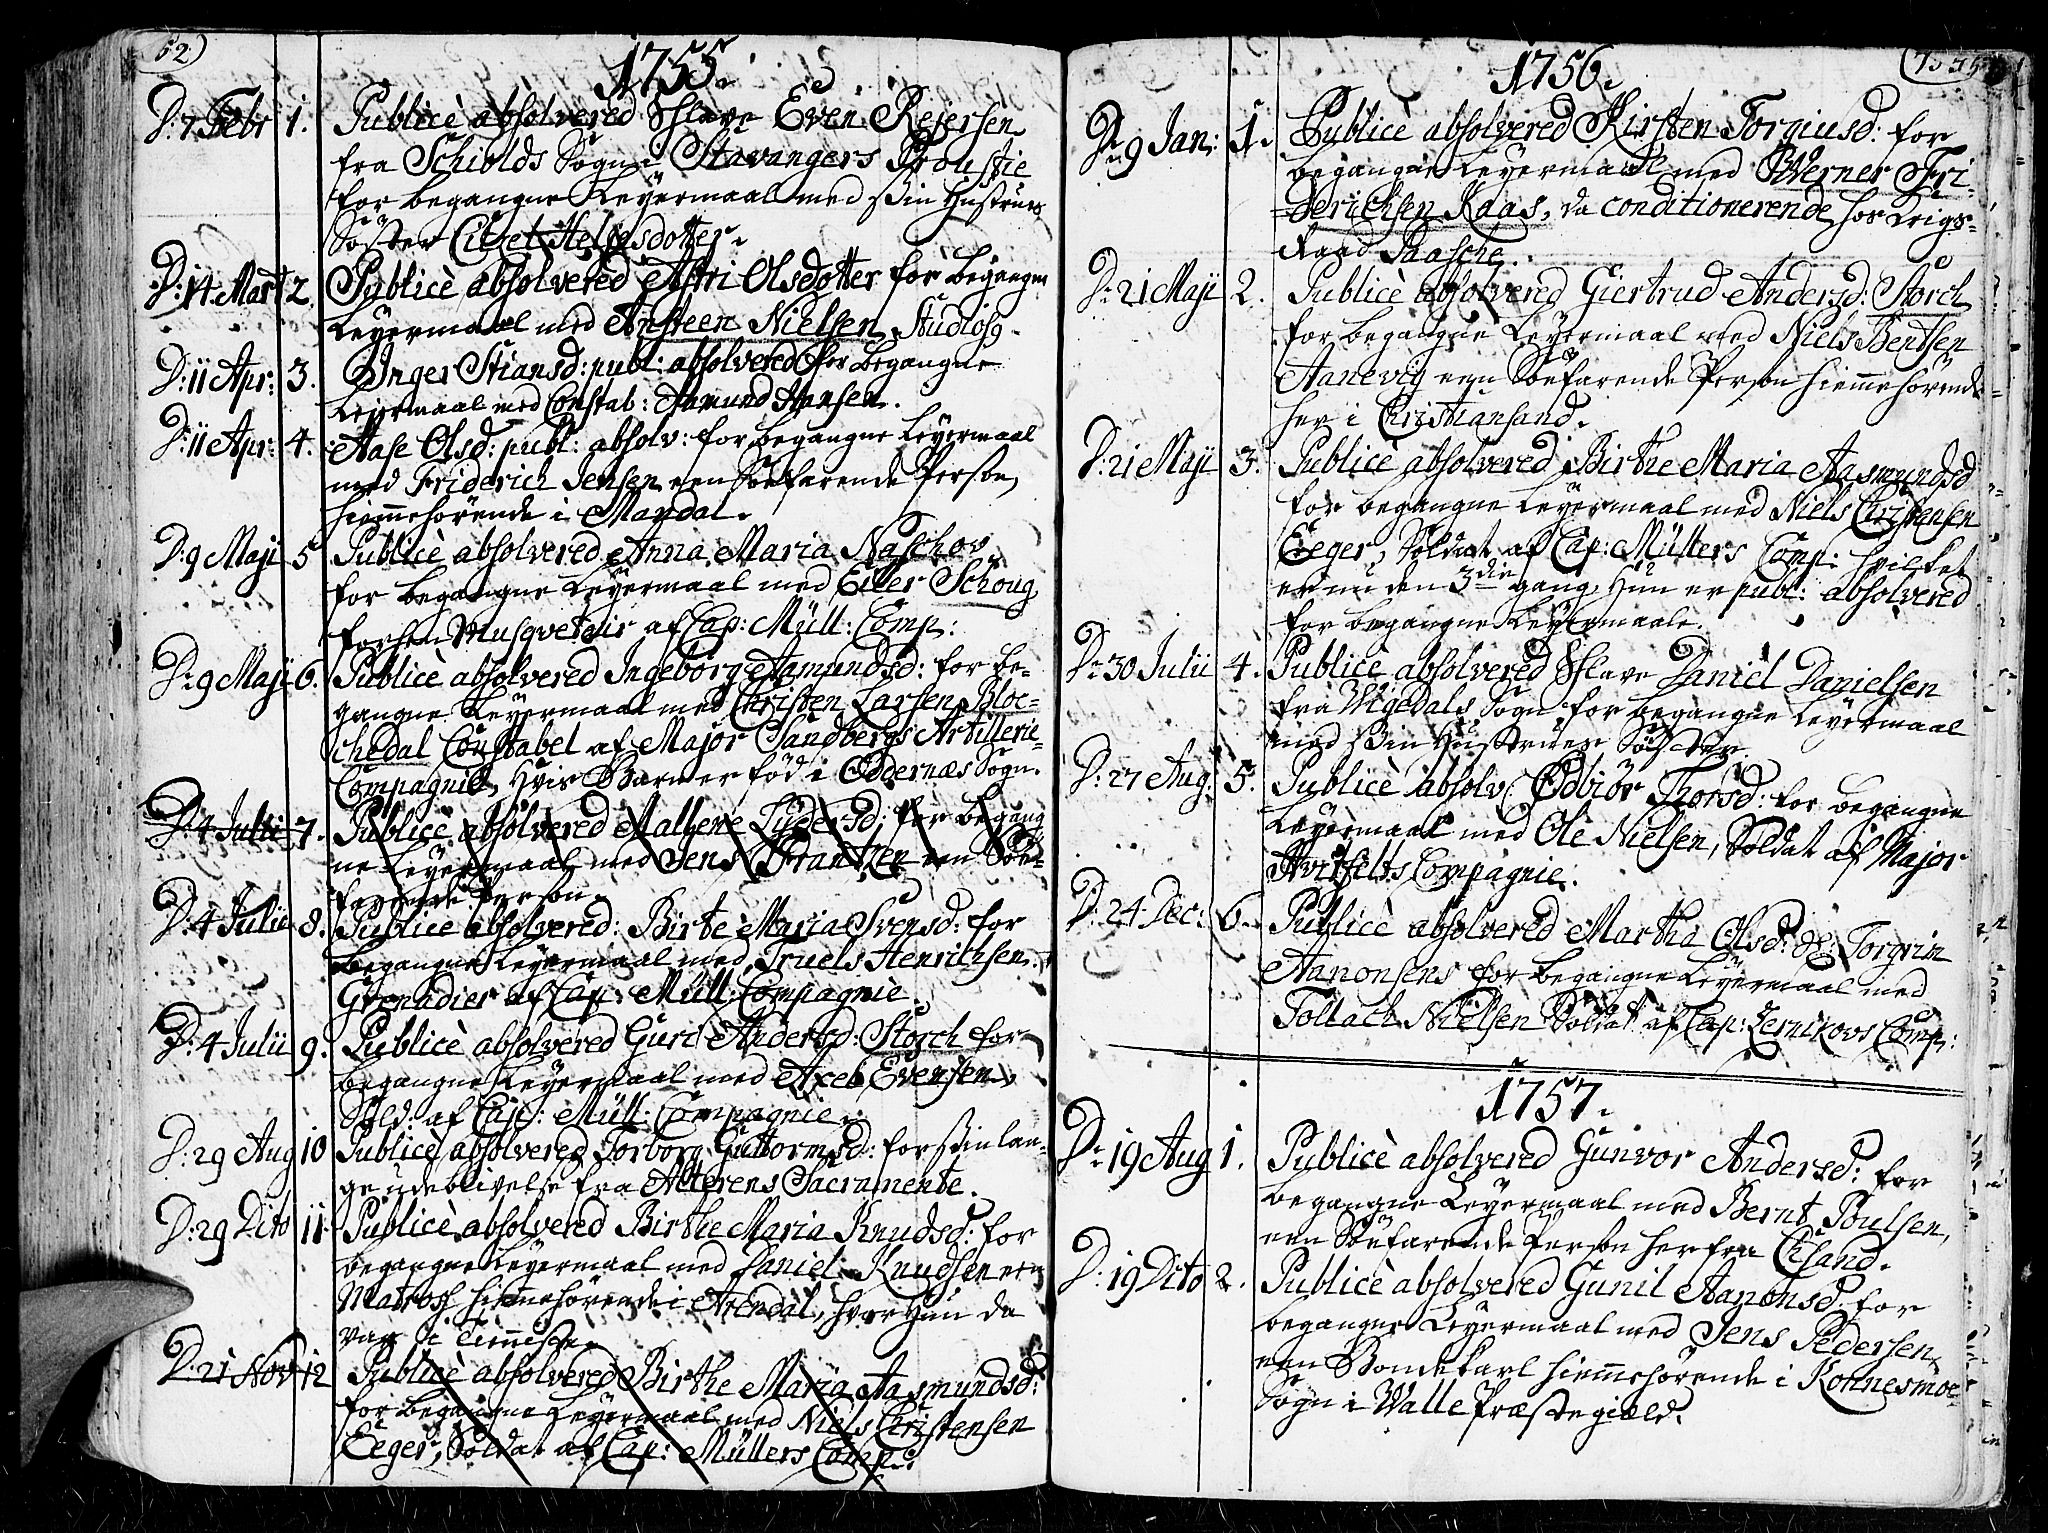 52)
1755.
D: 7 Febr 1. Publicè absolvered Schlave Even Rejersen
fra Schiolds Sogn i Stavangers Proustie
for begangne Leyermaal med sin Hustrues
Søster Cidzel Helgesdotter.
D: 14 Mart 2. Publicè absolvered Astri Olsdotter for begangne
Leyermaal med Ansteen Nielsen, Studios9.
D: 11 Apr: 3. Inger Stiansd: publ: absolvered for begangne
Leyermaal med Constab: Amund Hansen.
D: 11 Apr: 4. Aase Olsd: publ: absolv: for begangne Leyermaal
med Friderich Jensen een Søefarende Person,
hiemmehörende i Mandal.
D: 9 Maji 5 Publicè absolvered Anna Maria Naschov
for begangne Leyermaal med Eiler Schöug
forhen Musqveteir af Cap: Müll: Comp:
D: 9 Maji 6. Publicè absolvered Ingeborg Aamundsd: for be-
gangne Leyermaal med Christen Larsen Bloc-
chedal Constabel af Major Sandbergs Artillerie-
Compagnie, hvis Barn er född i Oddernæs Sogn.
D: 4 Julii 7. Publicè absolvered Mallene Lydersd: for begang
ne Leyermaal med Jens Frantzen een Søe-
farende Person.
D: 4 Julii 8. Publicè absolvered: Birte Maria Svensd: for
begangne Leyermaal med Truels Henrichsen
Grenadier af Cap: Müll: Compagnie.
D: 4 Julii 9. Publicè absolvered Guri Andersd: Storch for
begangne Leyermaal med Axel Evensen,
Sold: af Cap: Müll: Compagnie.
D: 29 Aug 10 Publicè absolvered Torborg Guttormsd: for sin lan-
ge udeblivelse fra Alterens Sacramente.
D: 29 Dito 11. Publicè absolvered Birthe Maria Knudsd: for
begangne Leyermaal med Daniel Knudsen een
Matros hiemmehörende i Arendal, hvor hun da
var i Tienniste.
D: 21 Nov 12 Publicè absolvered Birthe Maria Aasmundsd:
for begangne Leyermaal med Niels Christensen
Eeger, Soldat af Cap: Müllers Comp:
1756.
D: 9 Jan: 1. Publicè absolvered Kirsten Torgiusd: for
begangne Leyermaal med Werner Fri-
derichsen Kaas, da conditionerende hos Krigs-
Raad Paasche.
D: 21 Maji 2. Publicè absolvered Giertrud Andersd: Storch
for begangne Leyermaal med Niels Bentsen
Aanevig een Søefarende Person hiemmehörende
her i Christiansand.
D: 21 Maji 3. Publicè absolvered Birthe Maria Aasmundsd
for begangne Leyermaal med Niels Christensen
Eeger, Soldat af Cap: Müllers Comp: hvilket
er nu den 3die gang, hun er publ: absolvered
for begangne Leyermaale.
D: 30 Julii 4. Publicè absolvered Schlave Daniel Danielsen
fra Vigedals Sogn for begangne Leyermaal
med sin Hustrues Søster.
D: 27 Aug: 5. Publicè absolv: Odbiör Thorsd: for begangne
Leyermaal med Ole Nielsen, Soldat af Major
Hvitfelts Compagnie.
D: 24 Dec: 6. Publicè absolvered Martha Olsd: og Torgrin
Aanonsens for begangne Leyermaal med
Tollach Nielsen Soldat af Cap: Lernikovs Comp:
1757.
D: 19 Aug 1. Publicè absolvered Gunvor Andersd: for
begangne Leyermaal med Bernt Poulsen,
een Söefarende Person her fra
D: 19 Dito 2. Publicè absolvered Gunil Aanonsd: for
begangne Leyermaal med Jens Pedersen
een Bondekarl hiemmehörende i Konnesmoe
Sogn i Walle Præstegield.